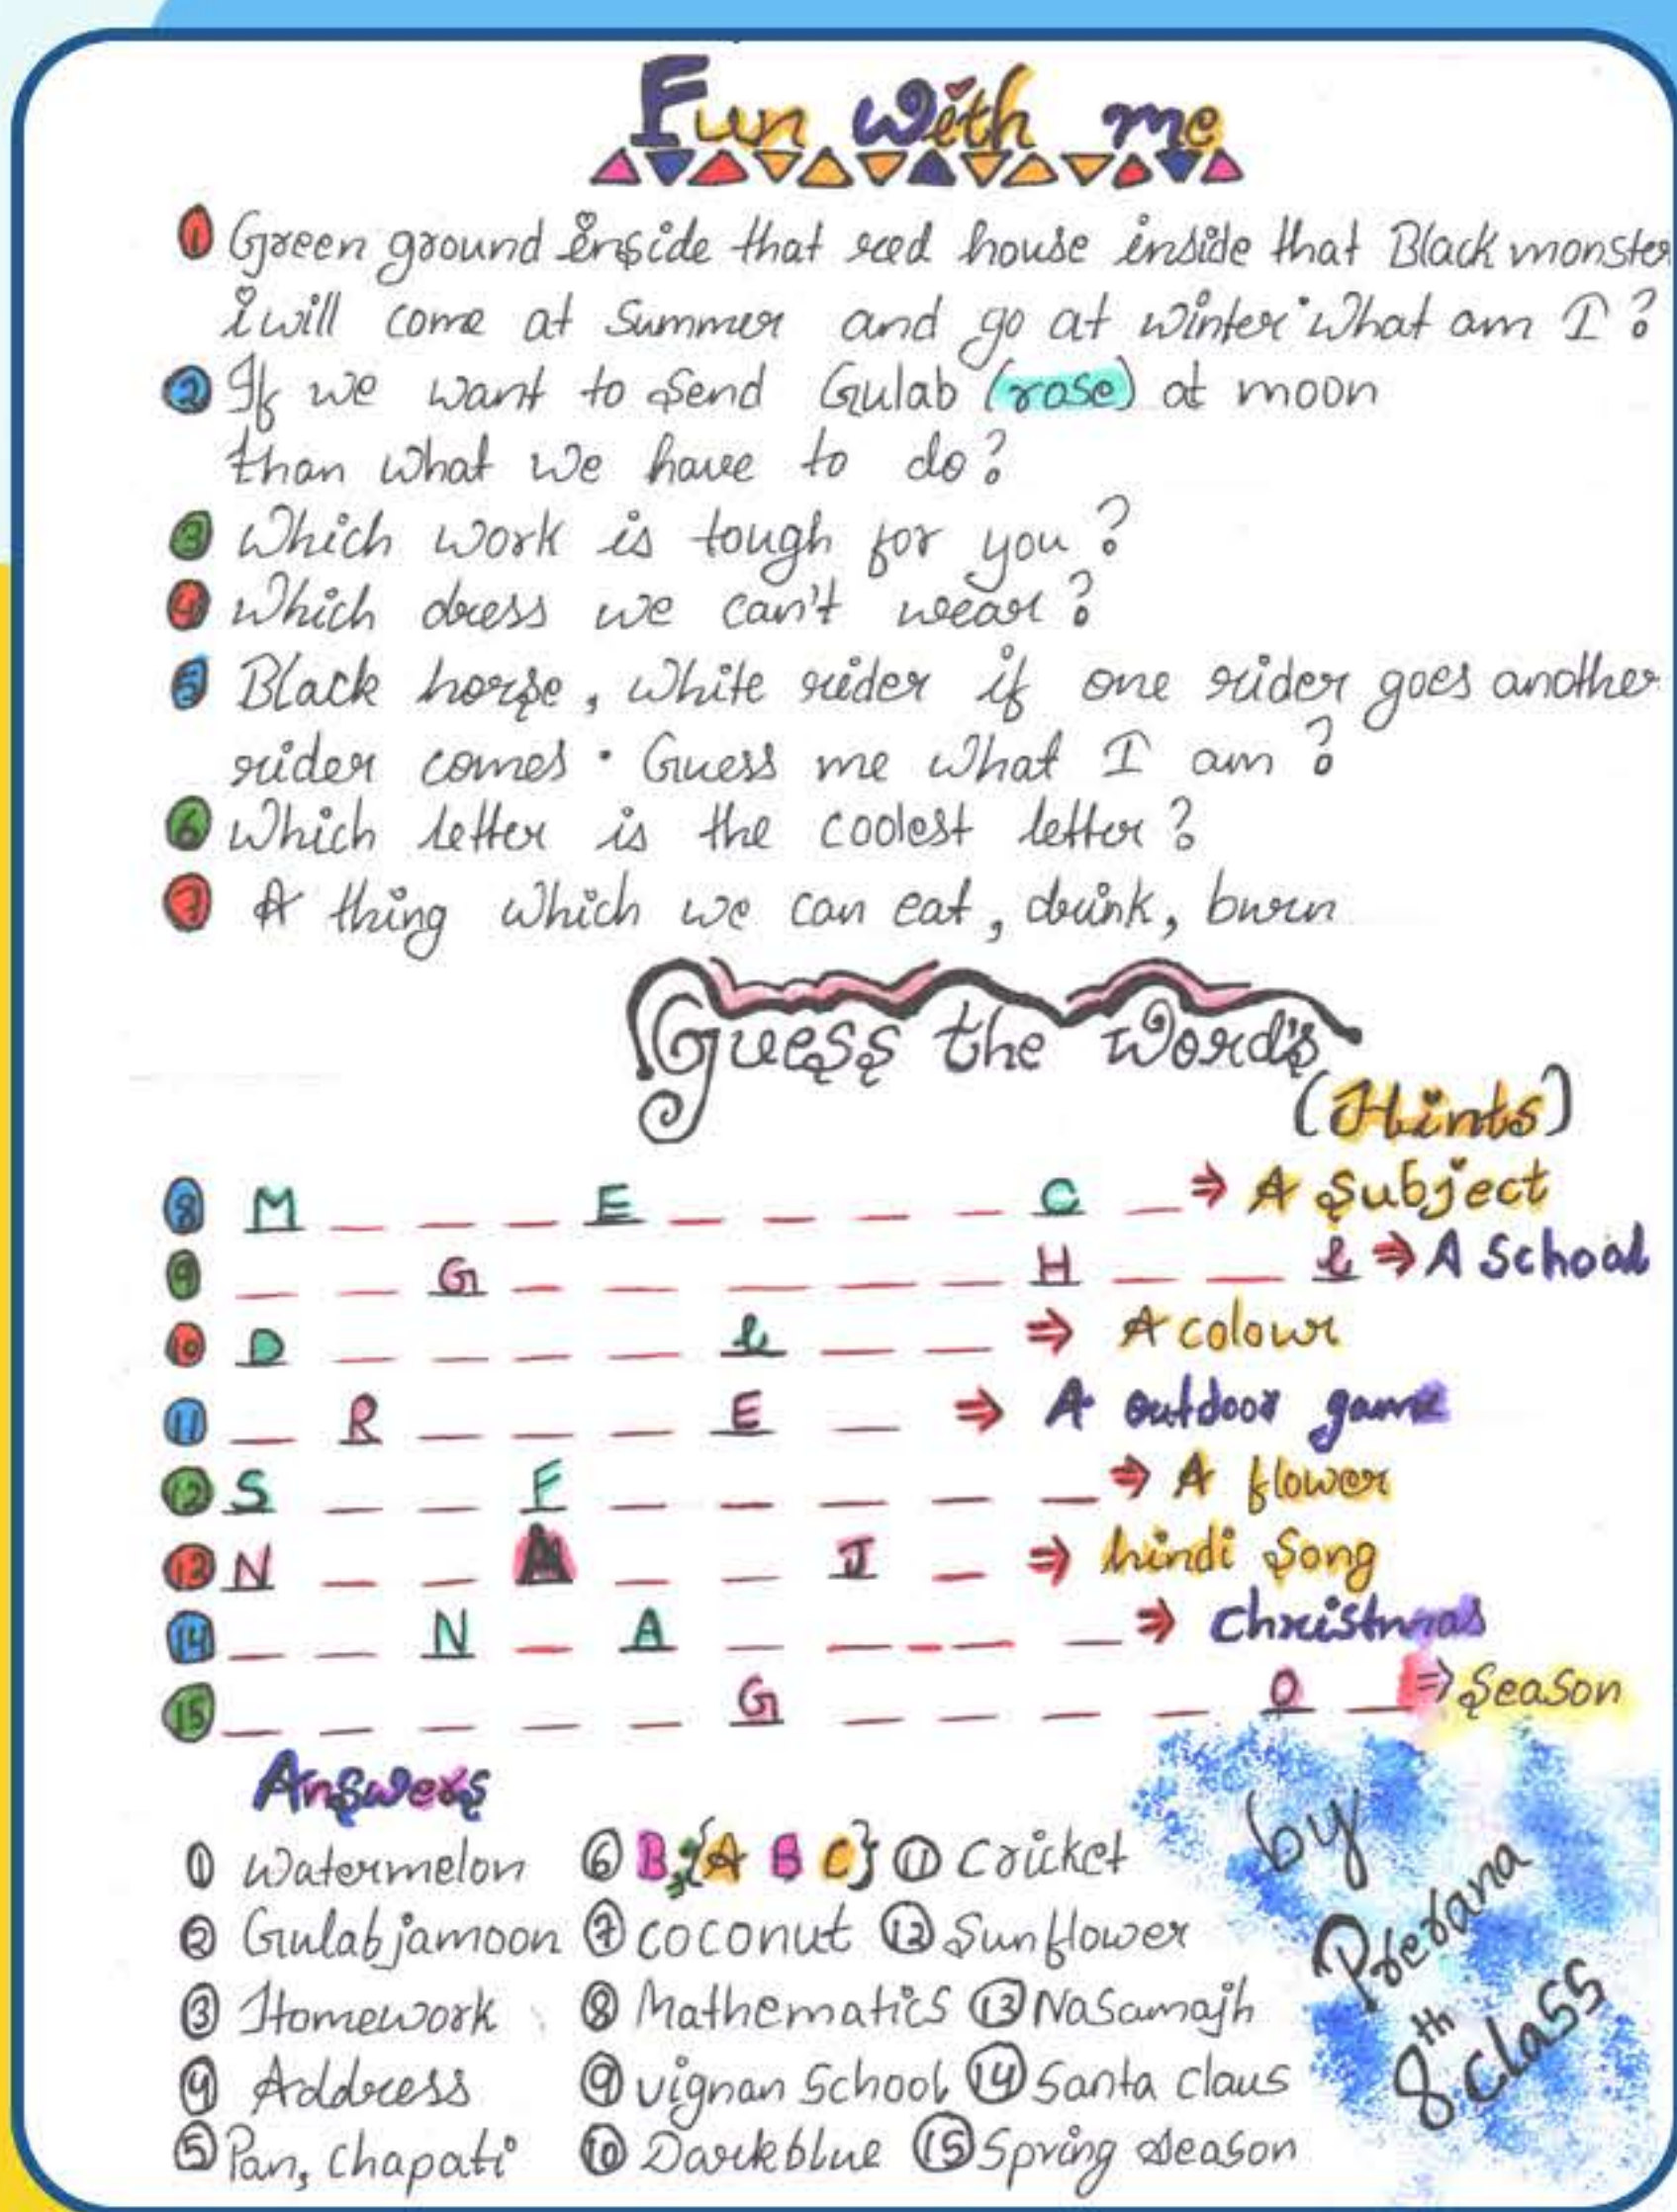 Fun with me
1 Green ground inside that red house inside that Black monster
i will come at Summer and go at winter. What am I?
2 If we want to send Gulab (rose) at moon
than what we have to do?
3 Which work is tough for you?
4 Which dress we can't wear?
5 Black horse, white rider if one rider goes another
rider comes. Guess me what I am?
6 Which letter is the coolest letter?
7 A thing which we can eat, drink, burn
Guess the Word's
(Hints)
8 M _ _ _ E _ _ _ _ C _ ⇒ A Subject
9 _ _ G _ _ _ _ _ H _ _ l ⇒ A School
10 D _ _ _ _ l _ _ ⇒ A colour
11 _ R _ _ _ E _ ⇒ A outdoor game
12 S _ _ F _ _ _ _ _ ⇒ A flower
13 N _ _ A _ _ J _ ⇒ hindi Song
14 _ _ N _ A _ _ _ _ _ ⇒ Christmas
15 _ _ _ _ _ G _ _ _ _ O _ ⇒ Season
Answers
1 Watermelon 6 B, {A B C} 11 Cricket
2 Gulabjamoon 7 coconut 12 Sunflower
3 Homework 8 Mathematics 13 NaSamajh
4 Address 9 vignan School 14 Santa claus
5 Pan, chapati 10 Darkblue 15 Spring season
by
Prerana
8th class